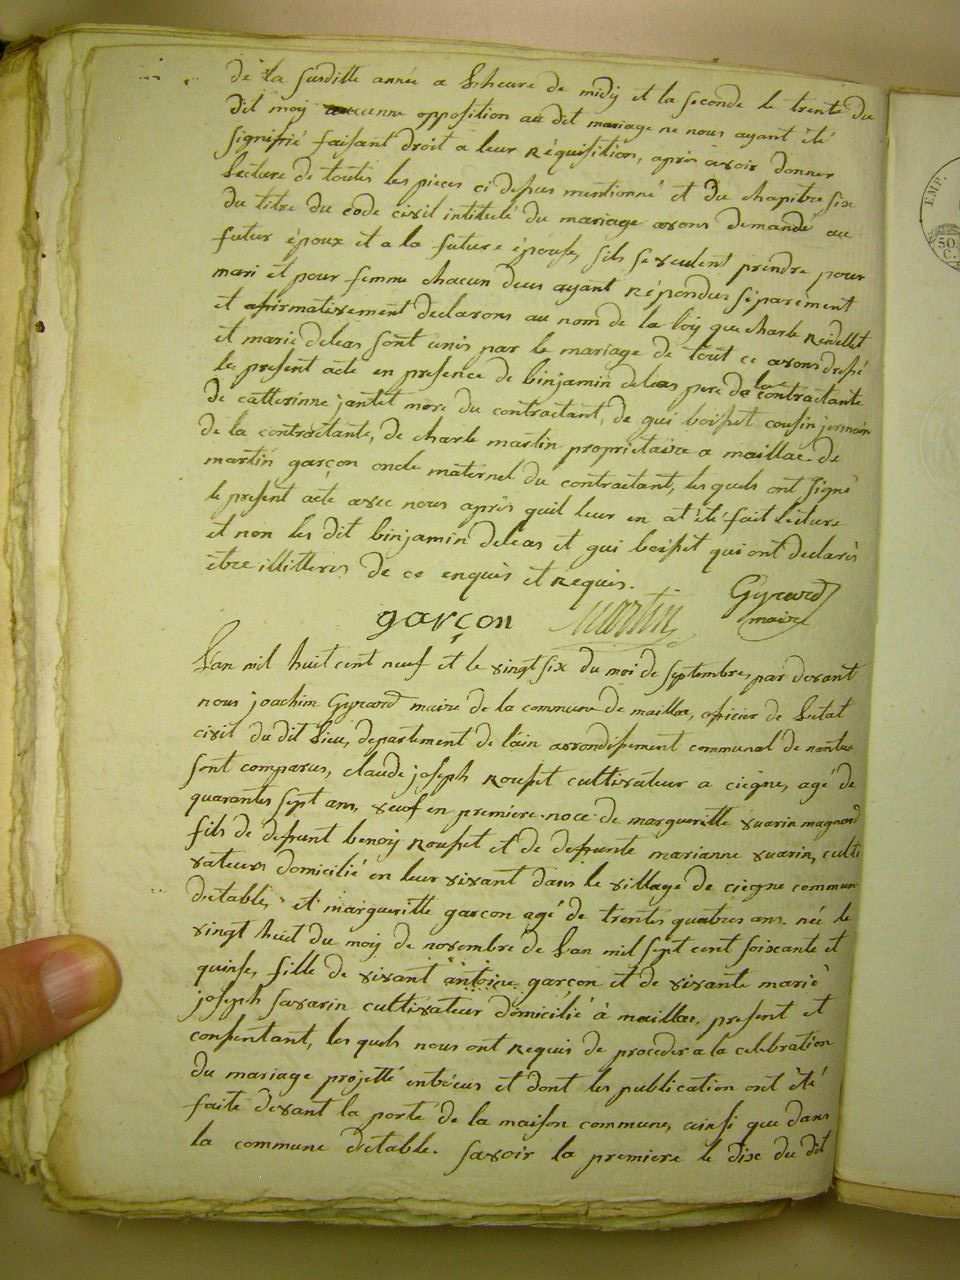 de la susditte année a lheure de midy et la seconde le trente du
dit moy aucunne opposition au dit mariage ne nous ayant été
signifié faisant droit a leur Réquisition, après avoir donner
lecture de toutes les pieces ci depus mentionné et du chapitre six
du titre du code civil intitulé du mariage avons demandé au
futur époux et a la future épouse, sils se veulent prendre pour
mari et pour femme chacun deux ayant Répondus séparement
et afirmativement declarons au nom de la loy que charle Revellet
et marie deleas sont unis par le mariage de tout ce avons dressé
le present acte en presence de binjamin deleas pere de la contractante
de catterinne jantet mere du contractant, de gui boisset cousin jermain
de la contractante, de charle martin proprietaire a maillac de
martin garçon oncle maternel du contractant, les quels ont signé
le present acte avec nous après quil leur en at été fait lecture
et non les dit binjamin deleas et gui boisset qui ont declarés
etre illitteres de ce enquis et Requis.
garçon martin Gyrard
maire
Lan mil huit cent neuf et le vingt six du moi de septembre, par devant
nous joachim Gyrard maire de la commune de maillac, officier de letat
civil du dit lieu, departement de lain arrondissement communal de nantua
sont comparus, claude joseph Rousset cultivateur a ciegne, agé de
quarantes sept ans, veuf en premiere noce de margueritte vuarin magnard
fils de deffunt benoy Rousset et de deffunte marianne vuarin, culti
vateurs domicilié en leur vivant dans le village de ciegne commun
detable, et margueritte garçon agé de trentes quatres ans née le
vingt huit du moy de novembre de lan mil sept cent soixante et
quinse, fille de vivant antoine garçon et de vivante marie
joseph savarin cultivateur domicilié à maillac, present et
consentant, les quels nous ont Requis de proceder a la celebration
du mariage projetté entreeux et dont les publication ont été
faite devant la porte de la maison commune, ainsi que dans
la commune detable. savoir la premiere le dix du dit
EMP.
50.
C.